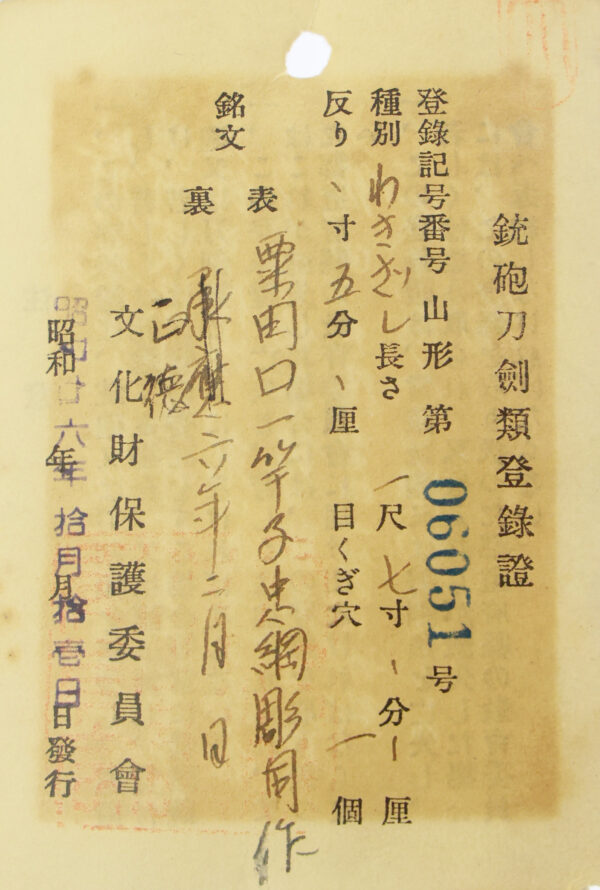 銃砲刀劍類登錄證
登錄記号番号 山形 第 06051 号
種別 わきざし 長さ 一尺 七寸 、分 厘
反り 、寸 五分 、厘 目くぎ穴 一 個
銘文
表 粟田口一竿子忠綱彫同作
裏 六年二月 日
正德
文化財保護委員會
昭和 年 月 日發行
昭和廿六年拾月拾壱日